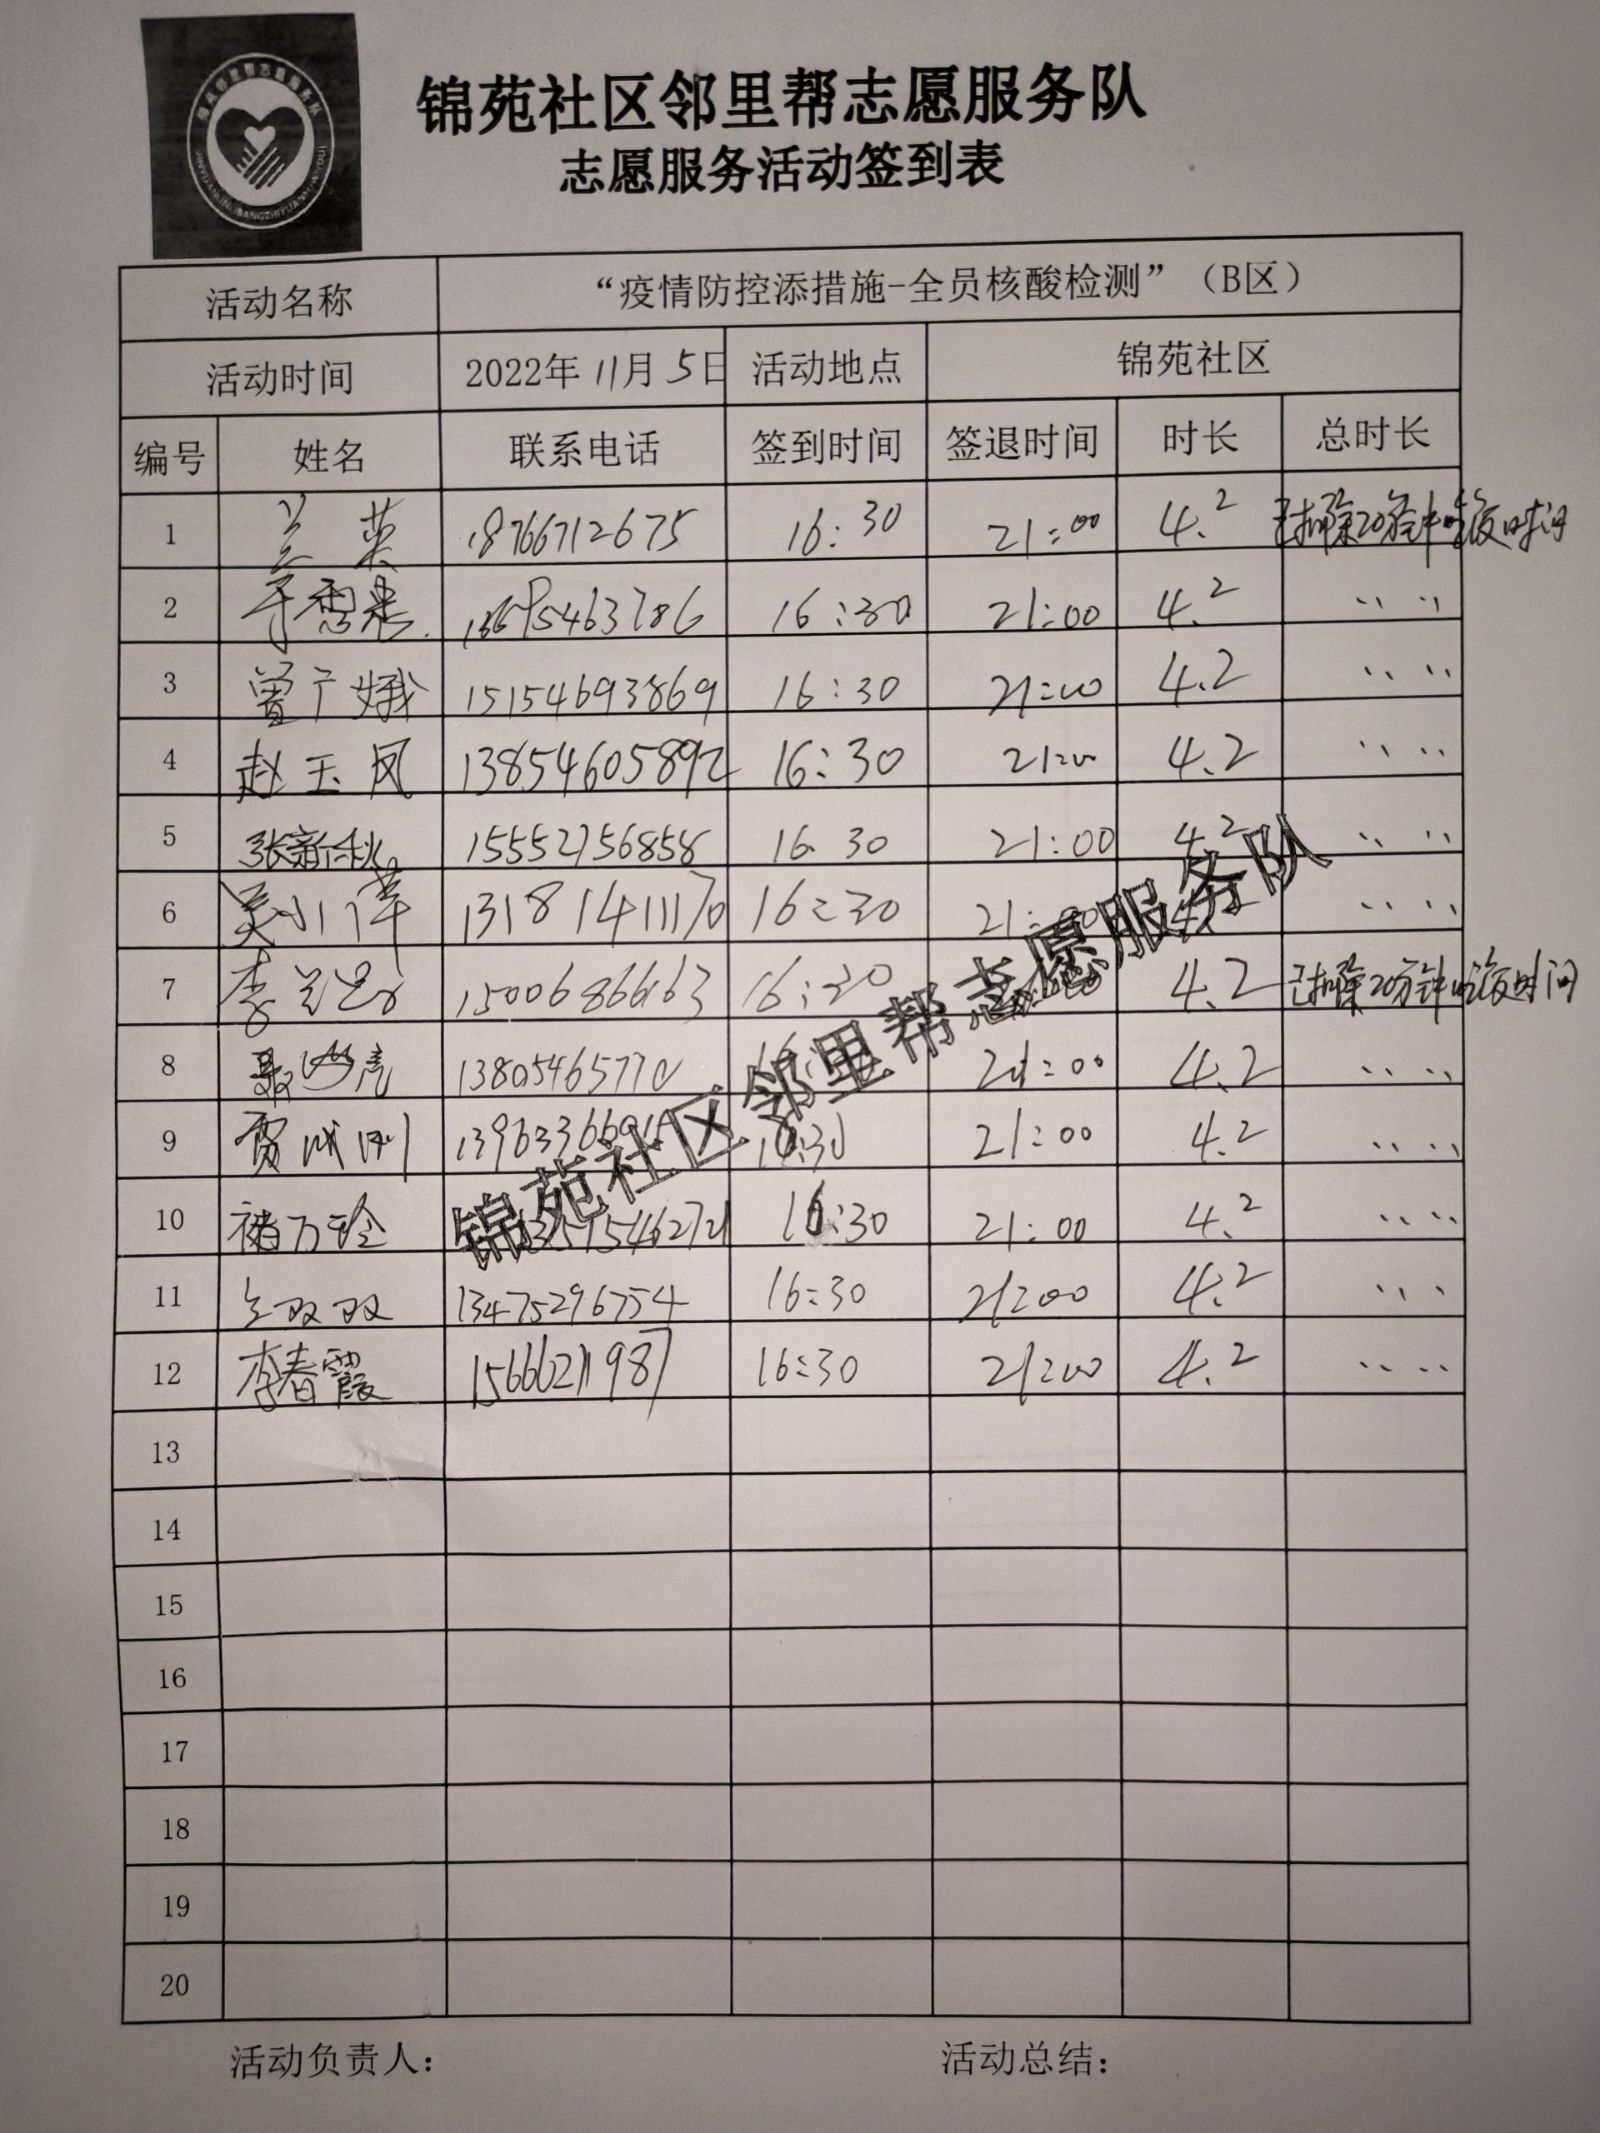 锦苑社区邻里帮志愿服务队
志愿服务活动签到表
活动名称 “疫情防控添措施-全员核酸检测”（B区）
活动时间 2022年11月5日 活动地点 锦苑社区
编号 姓名 联系电话 签到时间 签退时间 时长 总时长
1 兰英 18766712675 16:30 21:00 4.2 已扣除20分钟吃饭时间
2 16:30 21:00 4.2 〃 〃
3 曾广娥 15154693869 16:30 21:00 4.2 〃 〃
4 赵玉凤 13854605892 16:30 21:00 4.2 〃 〃
5 张新秋 15552756858 16:30 21:00 4.2 〃 〃
6 吴小萍 13181411170 16:30 21:00 〃 〃
7 15006866163 16:30 4.2 已扣除20分钟吃饭时间
8 13805465770 21:00 4.2 〃 〃
9 贾 16:30 21:00 4.2 〃 〃
10 褚万玲 16:30 21:00 4.2 〃 〃
11 双双 13475296754 16:30 21:00 4.2 〃 〃
12 李春霞 15666211987 16:30 21:00 4.2 〃 〃
13
14
15
16
17
18
19
20
锦苑社区邻里帮志愿服务队
活动负责人： 活动总结：